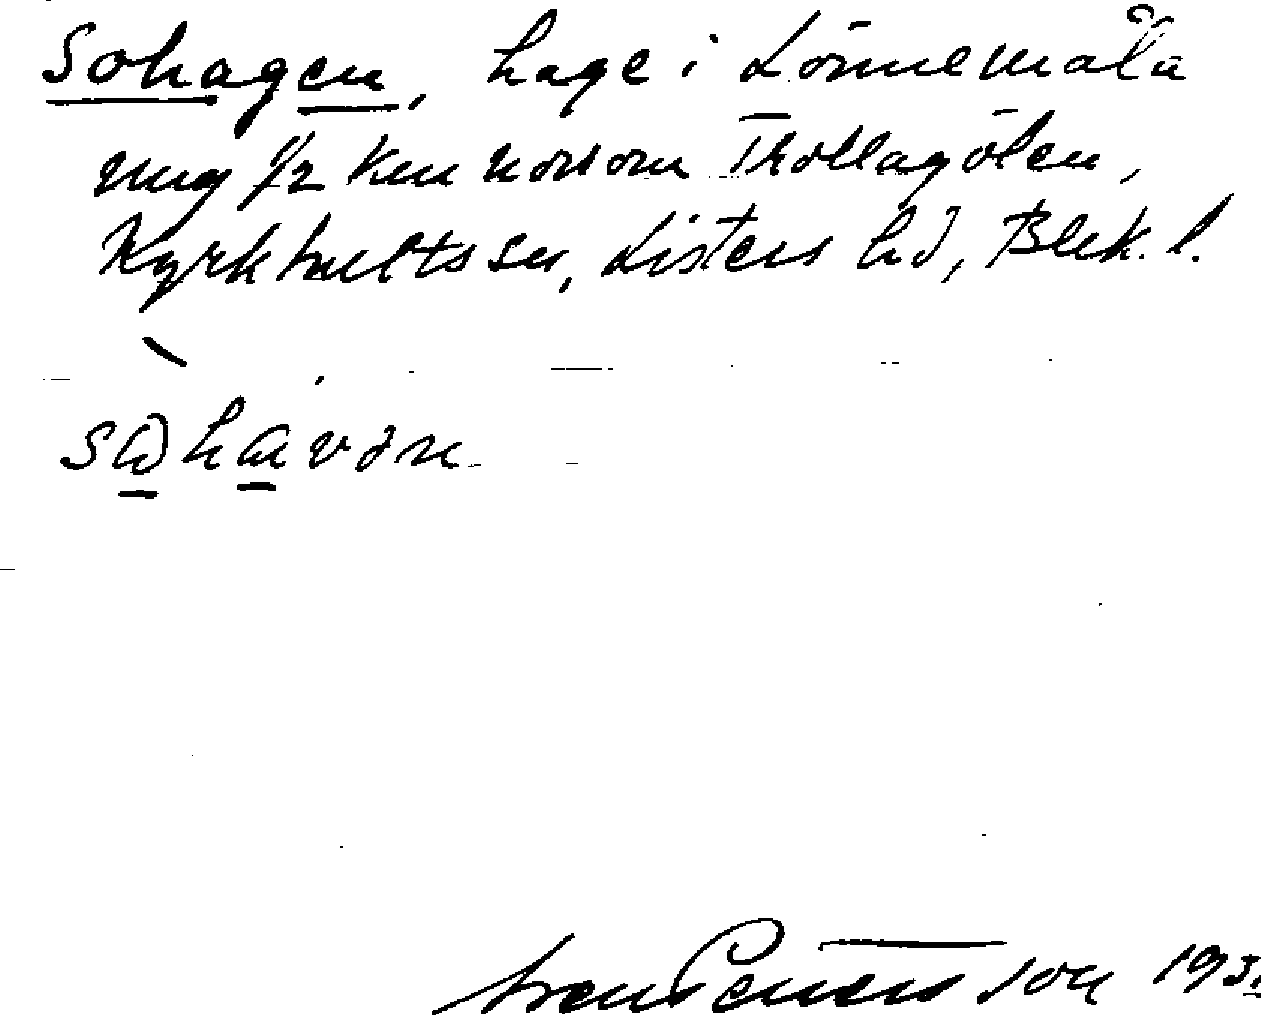 Sohagen, hage i Lönnemåla
ung 1/2 km norrom Trollagölen,
Kyrkhults sn, Listers hd, Blek. l.
sωhαvən
Pettersson 193